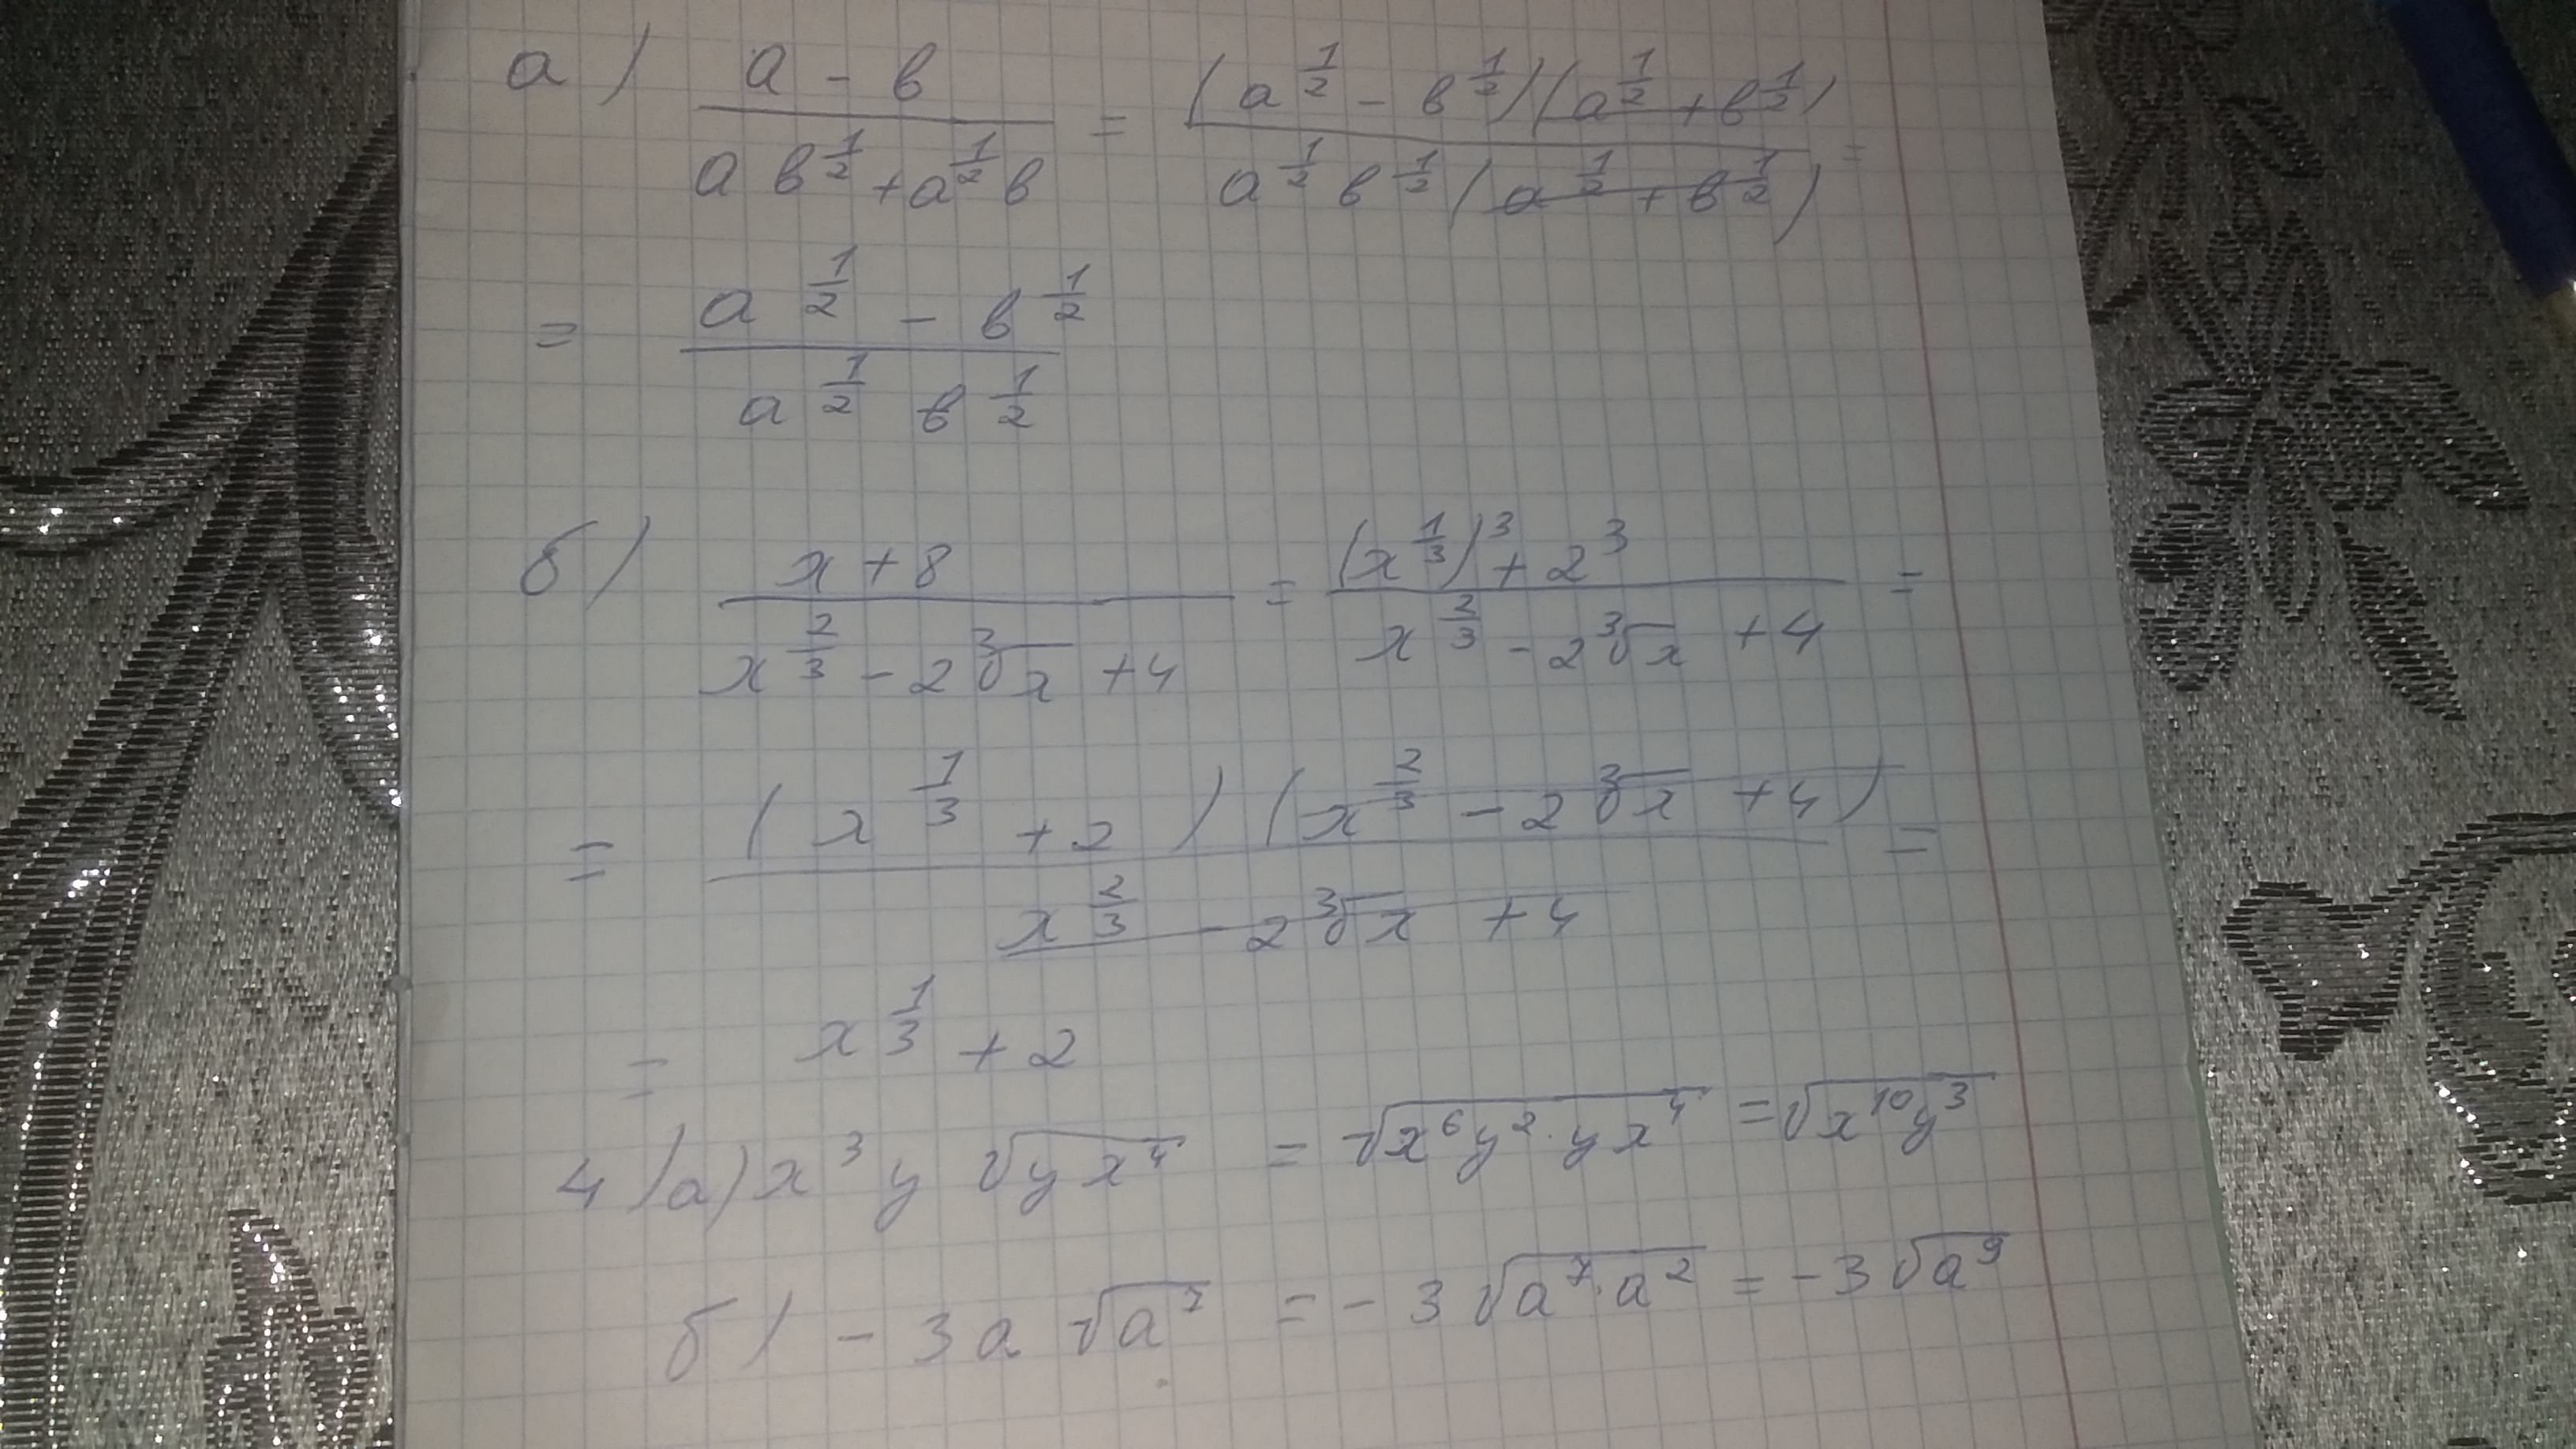 а) (a - b)/(a b^(1/2) + a^(1/2) b) = ((a^(1/2) - b^(1/2))(a^(1/2) + b^(1/2)))/(a^(1/2) b^(1/2) (a^(1/2) + b^(1/2))) =
= (a^(1/2) - b^(1/2))/(a^(1/2) b^(1/2))
б) (x + 8)/(x^(2/3) - 2∛x + 4) = ((x^(1/3))^3 + 2^3)/(x^(2/3) - 2∛x + 4) =
= ((x^(1/3) + 2)(x^(2/3) - 2∛x + 4))/(x^(2/3) - 2∛x + 4) =
= x^(1/3) + 2
4) а) x³y √(yx⁴) = √(x⁶y²·yx⁴) = √(x¹⁰y³)
б) - 3a √(a⁷) = - 3 √(a⁷·a²) = - 3 √(a⁹)